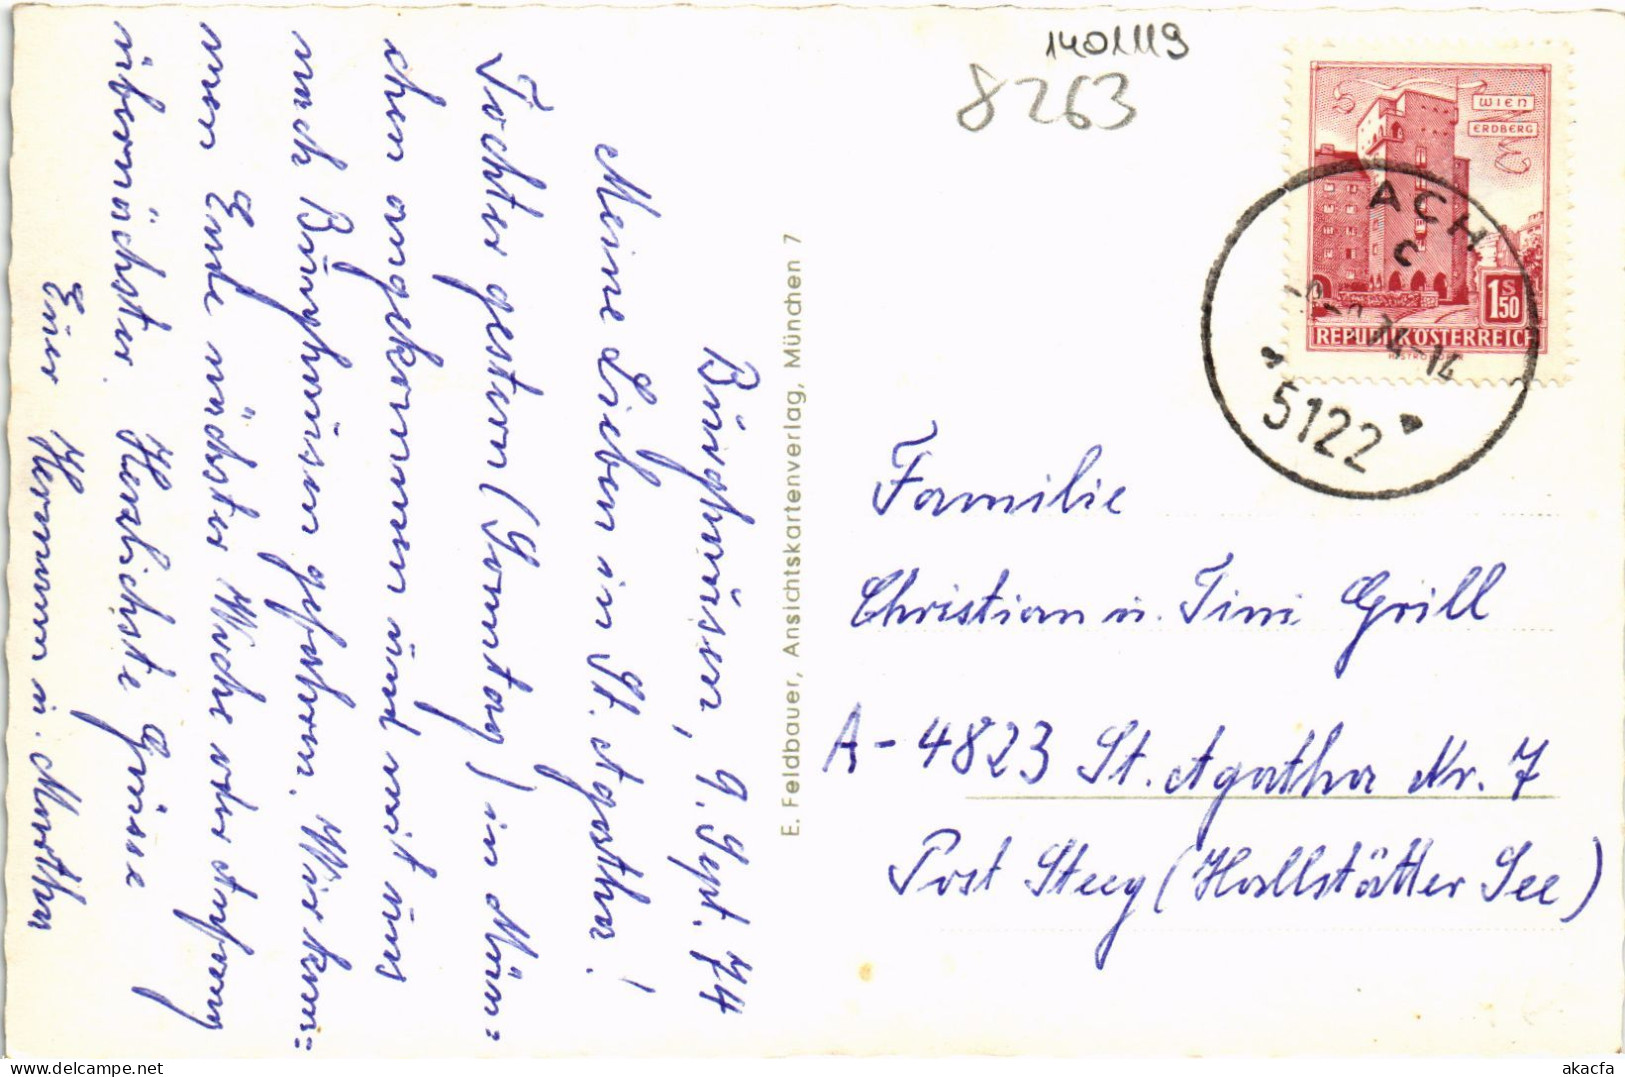 1401119
8263
WIEN
ERDBERG
1 S 50
REPUBLIK ÖSTERREICH
ACH
C
74-14
5122
Burghausen, 9. Sept. 74
Meine Lieben in St. Agatha!
Tochter gestern (Sonntag) in Mün=
chen angekommen und mit uns
nach Burghausen gefahren. Wir kom=
men Ende nächster Woche oder Anfang
übernächster. Herzlichste Grüsse
Euer Hermann u. Martha
E. Feldbauer, Ansichtskartenverlag, München 7
Familie
Christian u. Tini Grill
A-4823 St. Agatha Nr. 7
Post Steeg (Hallstätter See)
akacfa